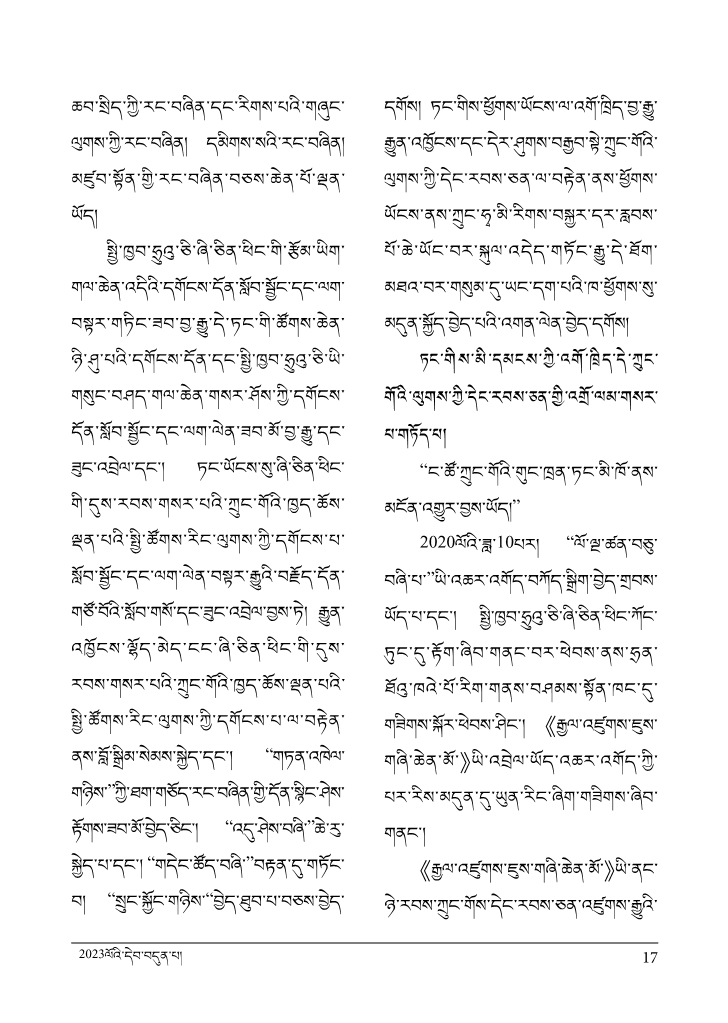 ཆབ་སྲིད་ཀྱི་རང་བཞིན་དང་རིགས་པའི་གཞུང་
ལུགས་ཀྱི་རང་བཞིན། དམིགས་སའི་རང་བཞིན།
མཛུབ་སྟོན་གྱི་རང་བཞིན་བཅས་ཆེན་པོ་ལྡན་
ཡོད།
སྤྱི་ཁྱབ་ཧྲུའུ་ཅི་ཞི་ཅིན་ཕིང་གི་རྩོམ་ཡིག་
གལ་ཆེན་འདིའི་དགོངས་དོན་སློབ་སྦྱོང་དང་ལག་
བསྟར་གཏིང་ཟབ་བྱ་རྒྱུ་དེ་ཏང་གི་ཚོགས་ཆེན་
ཉི་ཤུ་པའི་དགོངས་དོན་དང་སྤྱི་ཁྱབ་ཧྲུའུ་ཅི་ཡི་
གསུང་བཤད་གལ་ཆེན་གསར་ཤོས་ཀྱི་དགོངས་
དོན་སློབ་སྦྱོང་དང་ལག་ལེན་ཟབ་མོ་བྱ་རྒྱུ་དང་
ཟུང་འབྲེལ་དང་། ཏང་ཡོངས་སུ་ཞི་ཅིན་ཕིང་
གི་དུས་རབས་གསར་པའི་ཀྲུང་གོའི་ཁྱད་ཆོས་
ལྡན་པའི་སྤྱི་ཚོགས་རིང་ལུགས་ཀྱི་དགོངས་པ་
སློབ་སྦྱོང་དང་ལག་ལེན་བསྟར་རྒྱུའི་བརྗོད་དོན་
གཙོ་བོའི་སློབ་གསོ་དང་ཟུང་འབྲེལ་བྱས་ཏེ། རྒྱུན་
འཁྱོངས་ལྷོད་མེད་ངང་ཞི་ཅིན་ཕིང་གི་དུས་
རབས་གསར་པའི་ཀྲུང་གོའི་ཁྱད་ཆོས་ལྡན་པའི་
སྤྱི་ཚོགས་རིང་ལུགས་ཀྱི་དགོངས་པ་ལ་བརྟེན་
ནས་བློ་སྒྲིམ་སེམས་སྐྱེད་དང་། “གཏན་འཁེལ་
གཉིས་”ཀྱི་ཐག་གཅོད་རང་བཞིན་གྱི་དོན་སྙིང་ཤེས་
རྟོགས་ཟབ་མོ་བྱེད་ཅིང་། “འདུ་ཤེས་བཞི་”ཆེ་རུ་
སྐྱེད་པ་དང་། “གདེང་ཚོད་བཞི་”བརྟན་དུ་གཏོང་
བ། “སྲུང་སྐྱོང་གཉིས་“བྱེད་ཐུབ་པ་བཅས་བྱེད་
དགོས། ཏང་གིས་ཕྱོགས་ཡོངས་ལ་འགོ་ཁྲིད་བྱ་རྒྱུ་
རྒྱུན་འཁྱོངས་དང་དེར་ཤུགས་བརྒྱབ་སྟེ་ཀྲུང་གོའི་
ལུགས་ཀྱི་དེང་རབས་ཅན་ལ་བརྟེན་ནས་ཕྱོགས་
ཡོངས་ནས་ཀྲུང་ཧྭ་མི་རིགས་བསྐྱར་དར་རླབས་
པོ་ཆེ་ཡོང་བར་སྐུལ་འདེད་གཏོང་རྒྱུ་དེ་ཐོག་
མཐའ་བར་གསུམ་དུ་ཡང་དག་པའི་ཁ་ཕྱོགས་སུ་
མདུན་སྐྱོད་བྱེད་པའི་འགན་ལེན་བྱེད་དགོས།
ཏང་གིས་མི་དམངས་ཀྱི་འགོ་ཁྲིད་དེ་ཀྲུང་
གོའི་ལུགས་ཀྱི་དེང་རབས་ཅན་གྱི་འགྲོ་ལམ་གསར་
པ་གཏོད་པ།
“ང་ཚོ་ཀྲུང་གོའི་གུང་ཁྲན་ཏང་མི་ཁོ་ནས་
མངོན་འགྱུར་བྱས་ཡོད།”
2020ལོའི་ཟླ་10པར། “ལོ་ལྔ་ཚན་བཅུ་
བཞི་པ་”ཡི་འཆར་འགོད་བཀོད་སྒྲིག་བྱེད་གྲབས་
ཡོད་པ་དང་། སྤྱི་ཁྱབ་ཧྲུའུ་ཅི་ཞི་ཅིན་ཕིང་ཀོང་
ཏུང་དུ་རྟོག་ཞིབ་གནང་བར་ཕེབས་ནས་ཧྲན་
ཐོའུ་ཁའེ་པོ་རིག་གནས་བཤམས་སྟོན་ཁང་དུ་
གཟིགས་སྐོར་ཕེབས་ཤིང་། 《རྒྱལ་འཛུགས་ཇུས་
གཞི་ཆེན་མོ་》ཡི་འབྲེལ་ཡོད་འཆར་འགོད་ཀྱི་
པར་རིས་མདུན་དུ་ཡུན་རིང་ཞིག་གཟིགས་ཞིབ་
གནང་།
《རྒྱལ་འཛུགས་ཇུས་གཞི་ཆེན་མོ་》ཡི་ནང་
ཉེ་རབས་ཀྲུང་གོས་དེང་རབས་ཅན་འཛུགས་རྒྱུའི་
2023ལོའི་དེབ་བདུན་པ།
17